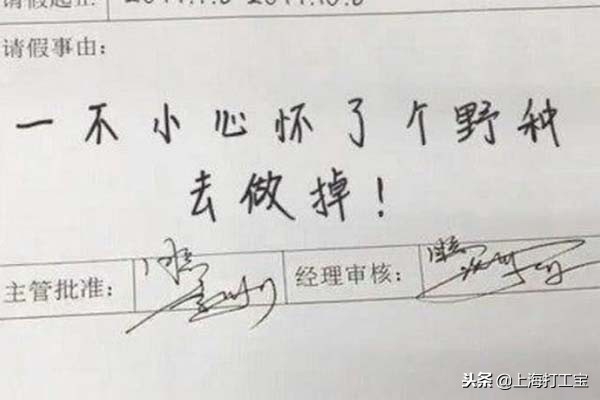 请假事由:
一不小心怀了个野种
去做掉!
主管批准: 同意 经理审核: 同意
头条 @上海打工宝